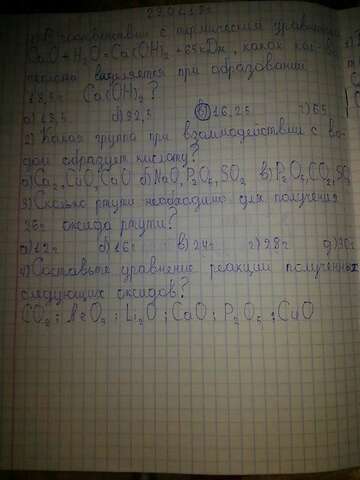 29.01.19г
1) В соответствии с термическим уравнением
CaO + H₂O = Ca(OH)₂ + 65кДж, какое кол-во
теплоты выделяется при образовании
18,5г Ca(OH)₂?
а) 18,5 б) 32,5 в) 16,25 г) 65
2) Какая группа при взаимодействии с во-
дой образует кислоту?
CuO, CaO б) Na₂O, P₂O₅, SO₂ в) P₂O₅, CO₂, SO₂
3) Сколько ртути необходимо для получения
26г оксида ртути?
а) 12г б) 16г в) 24г г) 28г д) 30г
4) Составьте уравнение реакции полученных
следующих оксидов?
CO₂; Li₂O; CaO; P₂O₅; CuO